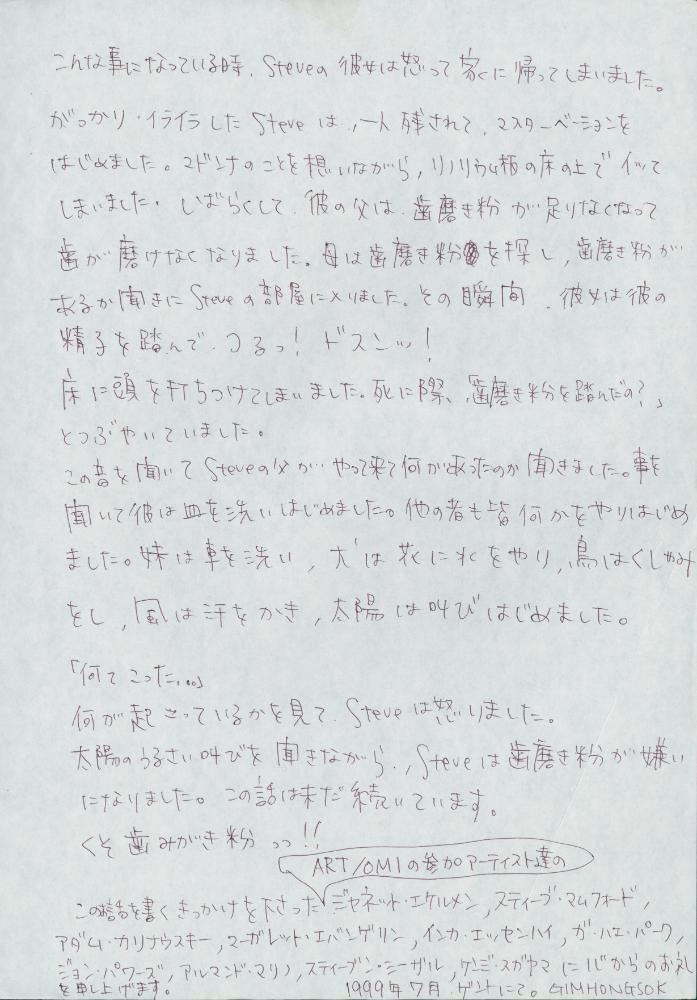 こんな事になっている時、Steveの彼女は怒って家に帰ってしまいました。
がっかり・イライラしたSteveは、一人残されて、マスターベーションを
はじめました。マドンナのことを想いながら、リノリウム板の床の上でイッて
しまいました。しばらくして、彼の父は、歯磨き粉が足りなくなって
歯が磨けなくなりました。母は歯磨き粉を探し、歯磨き粉が
あるか聞きにSteveの部屋に入りました。その瞬間、彼女は彼の
精子を踏んで、つるっ!ドスンッ!
床に頭を打ちつけてしまいました。死に際、「歯磨き粉を踏んだの?」
とつぶやいていました。
この音を聞いてSteveの父が、やって来て何があったのか聞きました。事を
聞いて彼は皿を洗いはじめました。他の者も皆何かをやりはじめ
ました。妹は車を洗い、犬は花に水をやり、鳥はくしゃみ
をし、風は汗をかき、太陽は叫びはじめました。
「何てこった...」
何が起こっているかを見て、Steveは怒りました。
太陽のうるさい叫びを聞きながら、Steveは歯磨き粉が嫌い
になりました。この話は未だ続いています。
くそ歯みがき粉っっ!!
ART/OMIの参加アーティスト達の
この物語を書くきっかけを下さったジャネット・エケルメン,スティーブ・マムフォード,
アダム・カリナウスキー,マーガレット・エバンゲリン,インカ・エッセンハイ,ガ・ハエ・パーク,
ジョン・パワーズ,アルマンド・マリノ,スティーブン・シーザル,ケンジ・スガヤマに心からのお礼
を申し上げます。 1999年7月 ゲントにて。GIMHONGSOK